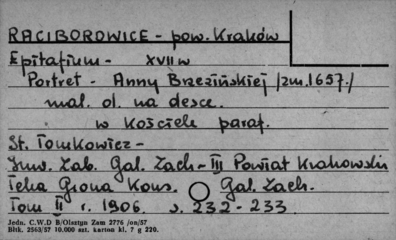 RACIBOROWICE - pow. Kraków
Epitafium - XVII w
Portret - Anny Brzezińskiej /zm. 1657./
mal. ol. na desce.
w Kościele paraf.
St. Tomkowicz -
Inw. Zab. Gal. Zach - III Powiat Krakowski
Teka Grona Kons. Gal. Zach.
Tom II r. 1906. s. 232 - 233
Jedn. C.W.D B/Olsztyn Zam 2776 /on/57
Błtk. 2563/57 10.000 szt. karton kl. 7 g 220.